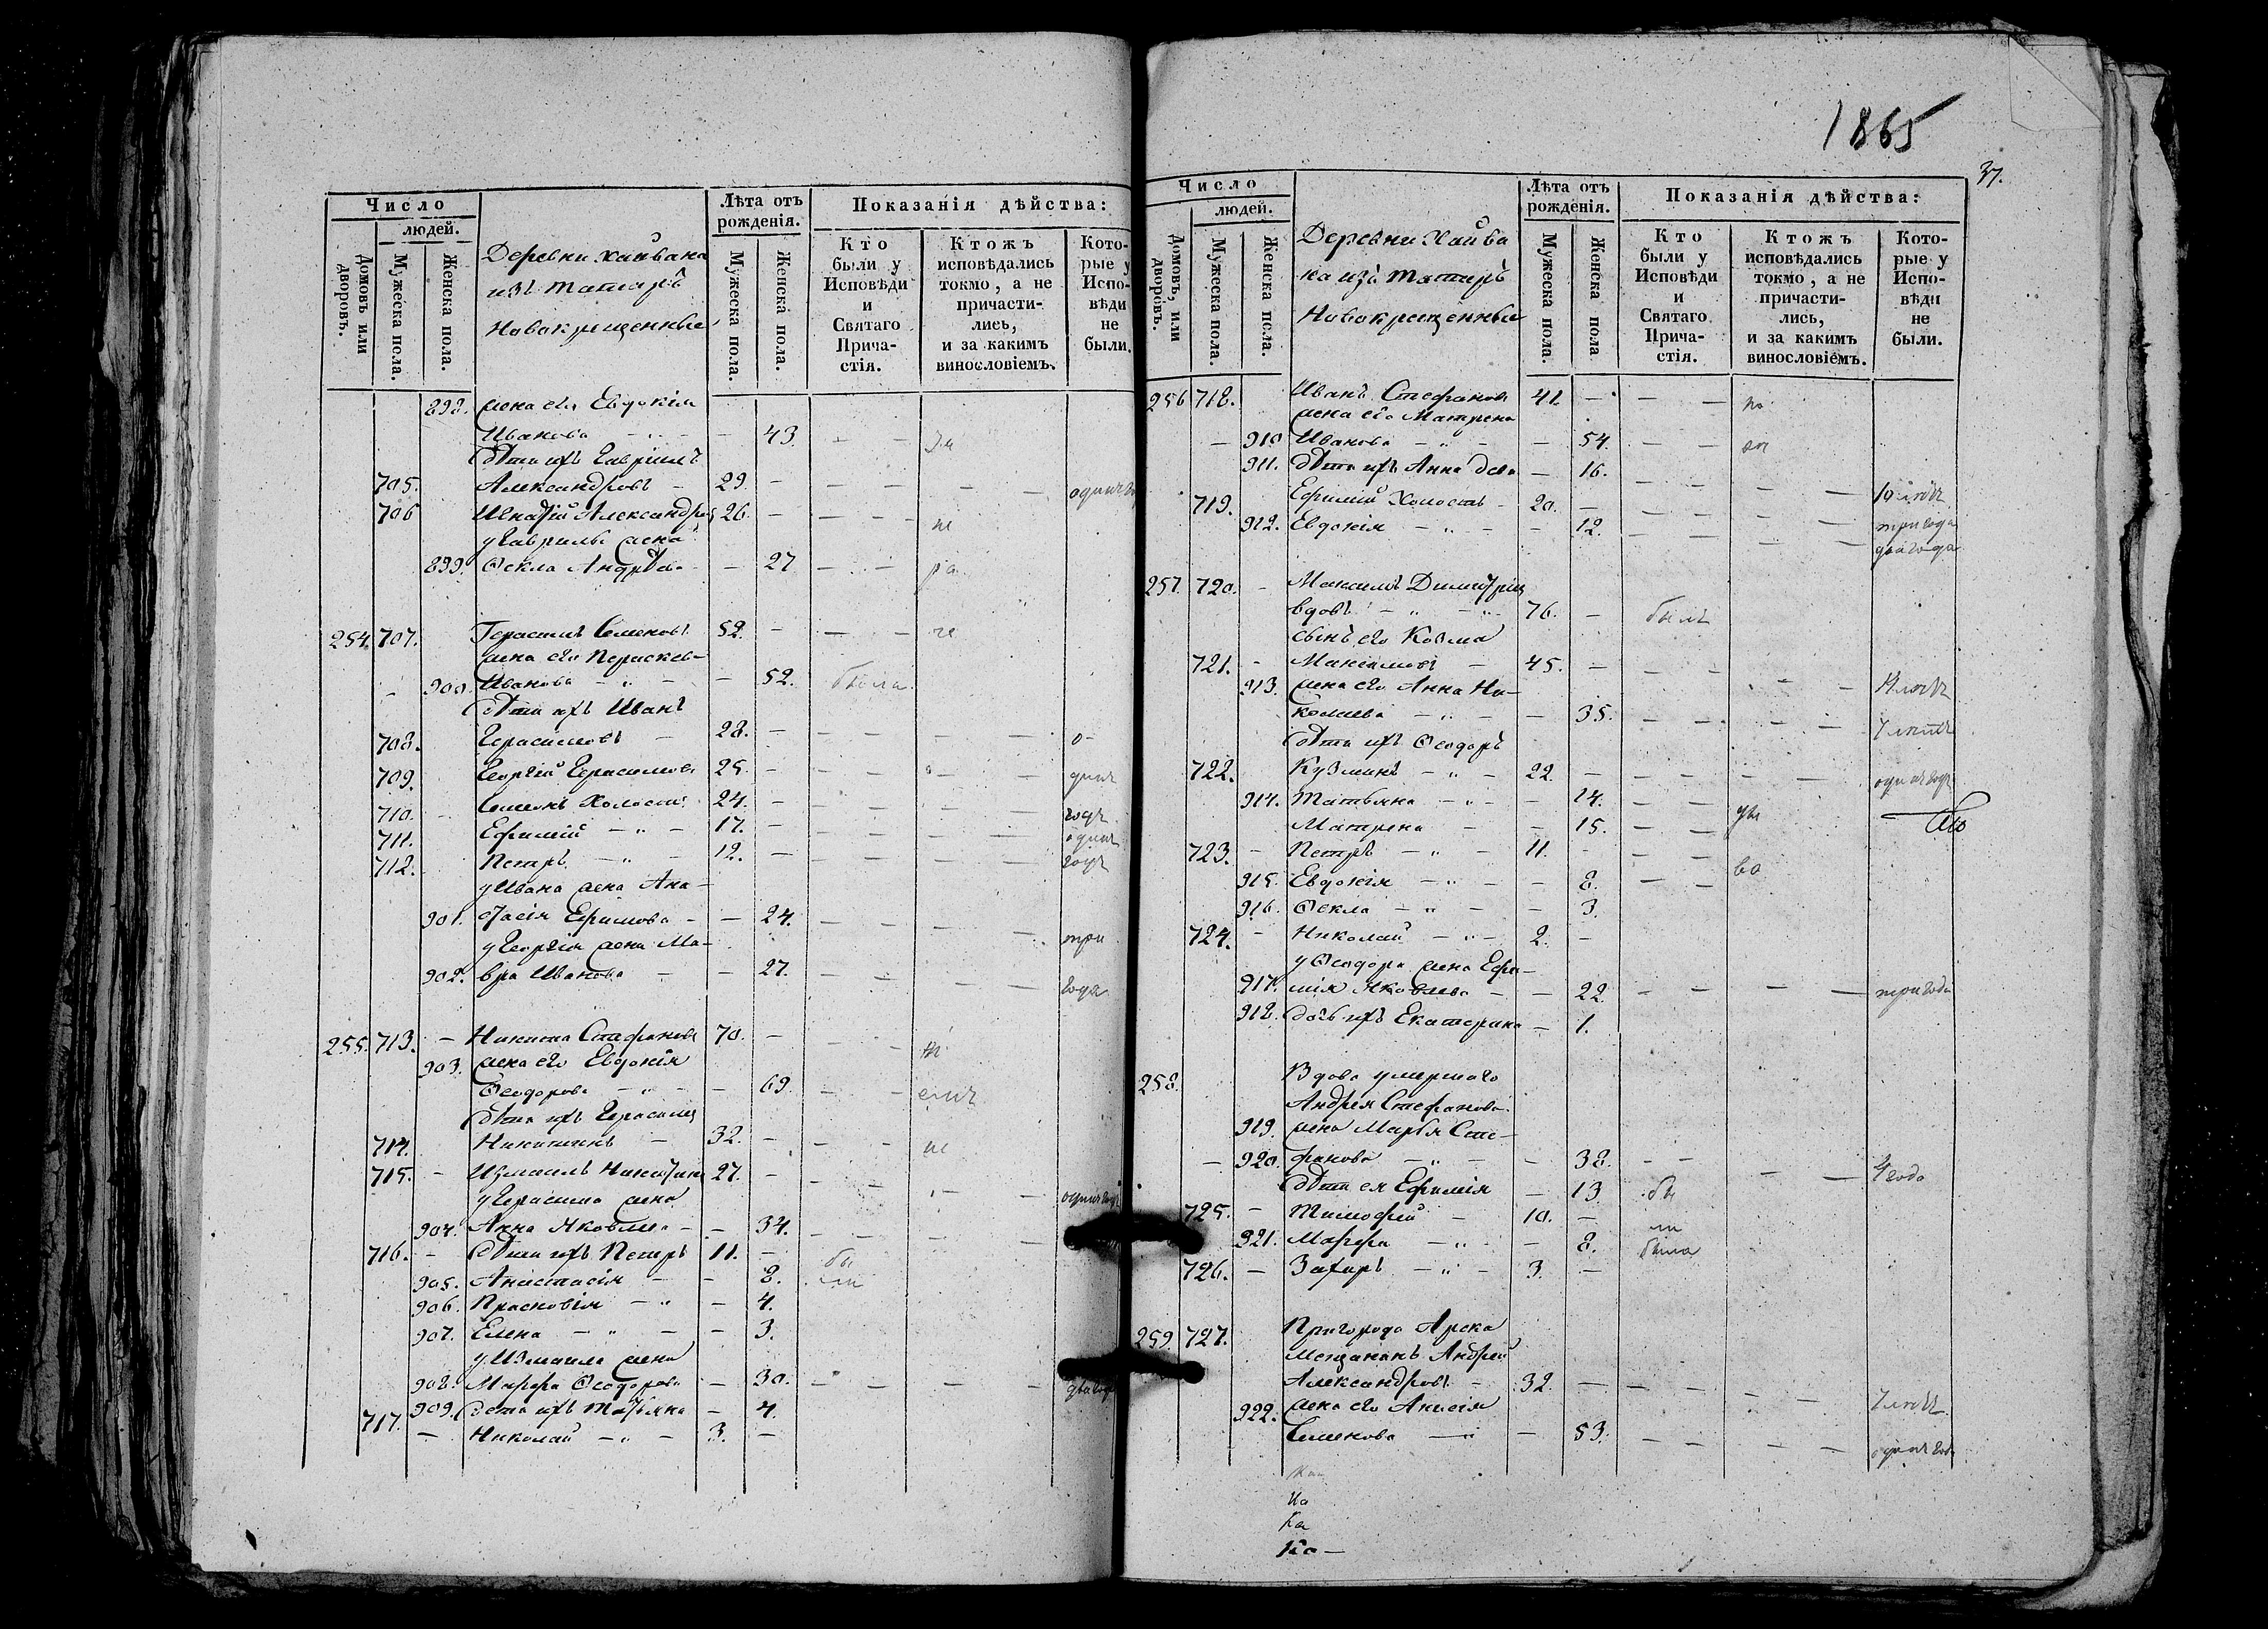 1865
37.
Число
людей.
Домовъ или дворовъ.
Мужеска пола.
Женска пола.
Деревни Хайвана
изъ татаръ
Новокрещенные
Лѣта отъ рожденія.
Мужеска пола.
Женска пола.
Показанія дѣйства:
Кто были у Исповѣди и Святаго Причастія.
Ктожъ исповѣдались токмо, а не причастились, и за какимъ винословіемъ.
Которые у Исповѣди не были.
898. жена его Евдокія
Иванова — 43.
Дѣти ихъ Гавріилъ
705. Александровъ — 29. — одинъ
706 Игнатій Александров 26. —
у Гаврилы жена
899. Ѳекла Андреева — 27
254. 707. Герасимъ Семеновъ 52. —
жена его Параскева
900. Иванова — 52. была
Дѣти ихъ Иванъ
708. Герасимовъ — 28. —
709. Георгій Герасимовъ 25. — один
710. Семенъ Холостъ 24. — годъ
711. Ефимій — 17. — один
712. Петръ — 12. — годъ
у Ивана жена Ана—
901. стасія Ефимова — 24.
у Георгія жена Ма— три
902. вра Иванова — 27. года
255. 713. — Никита Стефановъ 70. —
903. жена его Евдокія
Ѳеодорова — 69.
Дѣти ихъ Герасимъ
714. Никитинъ — 32. —
715. — Измаилъ Никитинъ 27. —
у Герасима жена одинъ годъ
904. Анна Яковлева — 34.
716. — Дѣти ихъ Петръ 11. — бы
905. Анастасія — 8. ли
906. Прасковія — 4.
907. Елена — 3.
у Измаила жена
908. Марфа Ѳеодорова — 30. — два года
909. Дѣти ихъ Татьяна — 4.
717. — Николай — 3. —
Число
людей.
Домовъ, или дворовъ.
Мужеска пола.
Женска пола.
Деревни Хайва
на изъ татаръ
Новокрещенные
Лѣта отъ рожденія.
Мужеска пола.
Женска пола
Показанія дѣйства:
Кто были у Исповѣди и Святаго Причастія.
Ктожъ исповѣдались токмо, а не причастились, и за какимъ винословіемъ.
Которые у Исповѣди не были.
256 718. Иванъ Стефановъ 41. — по
жена его Матрена
— 910 Иванова — 54.
911. Дѣти ихъ Анна дева — 16. 10 лѣтъ
719. Ефимій Холостъ — 20. — три года
912. Евдокія — 12. два года
257. 720. — Максимъ Димитріев
вдовъ — 76. — былъ
сынъ его Козма
721. — Максимовъ — 45. —
913. жена его Анна Ни—
колаева — 35. 7 лѣтъ
Дѣти ихъ Ѳеодоръ
722. Кузминъ — 22. — одинъ годъ
914. Татьяна — 14.
Матрена — 15.
723. — Петръ — 11. —
915. Евдокія — 8.
916. Ѳекла — 3.
724. — Николай — 2. —
у Ѳеодора жена Ефи—
917. мія Яковлева — 22. три года
918. дочь ихъ Екатерина — 1.
258. Вдова умершаго
Андрея Стефанова
919. жена Марья Сте—
— 920. фанова — 38. 4 года
Дѣти ея Ефимія — 13 бы
725. — Тимофей — 10. — ли
921. Марфа — 8. была
726. — Захаръ — 3. —
259. 727. Пригорода Арска
Мещанинъ Андрей
Александровъ — 32. — 7 лѣтъ
922. жена его Анисія
Семенова — 53. одинъ годъ
На
Ка
Ка —